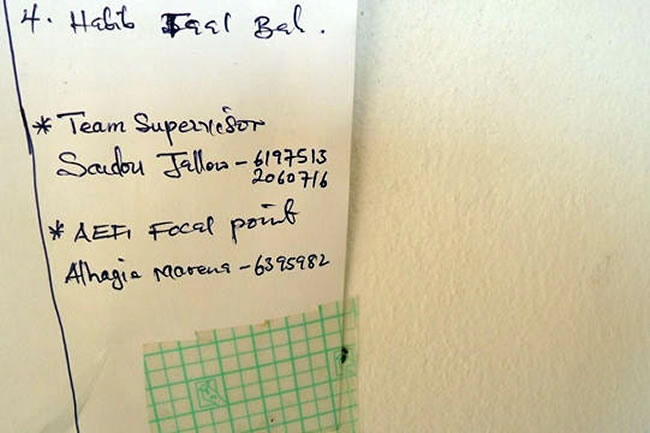 4. Habib Bah.
* Team Supervisor
Saidou Jallow - 6197513
2060716
* AEFI Focal point
Alhagie Marena - 6395982